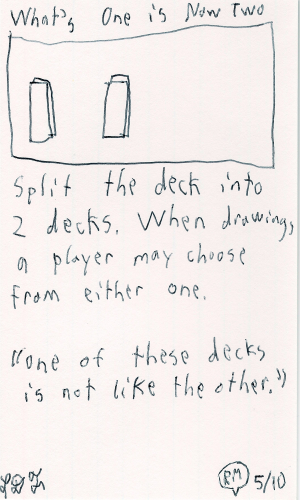 What's One is Now Two
Split the deck into
2 decks. When drawing,
a player may choose
from either one.
"One of these decks
is not like the other."
RM 5/10